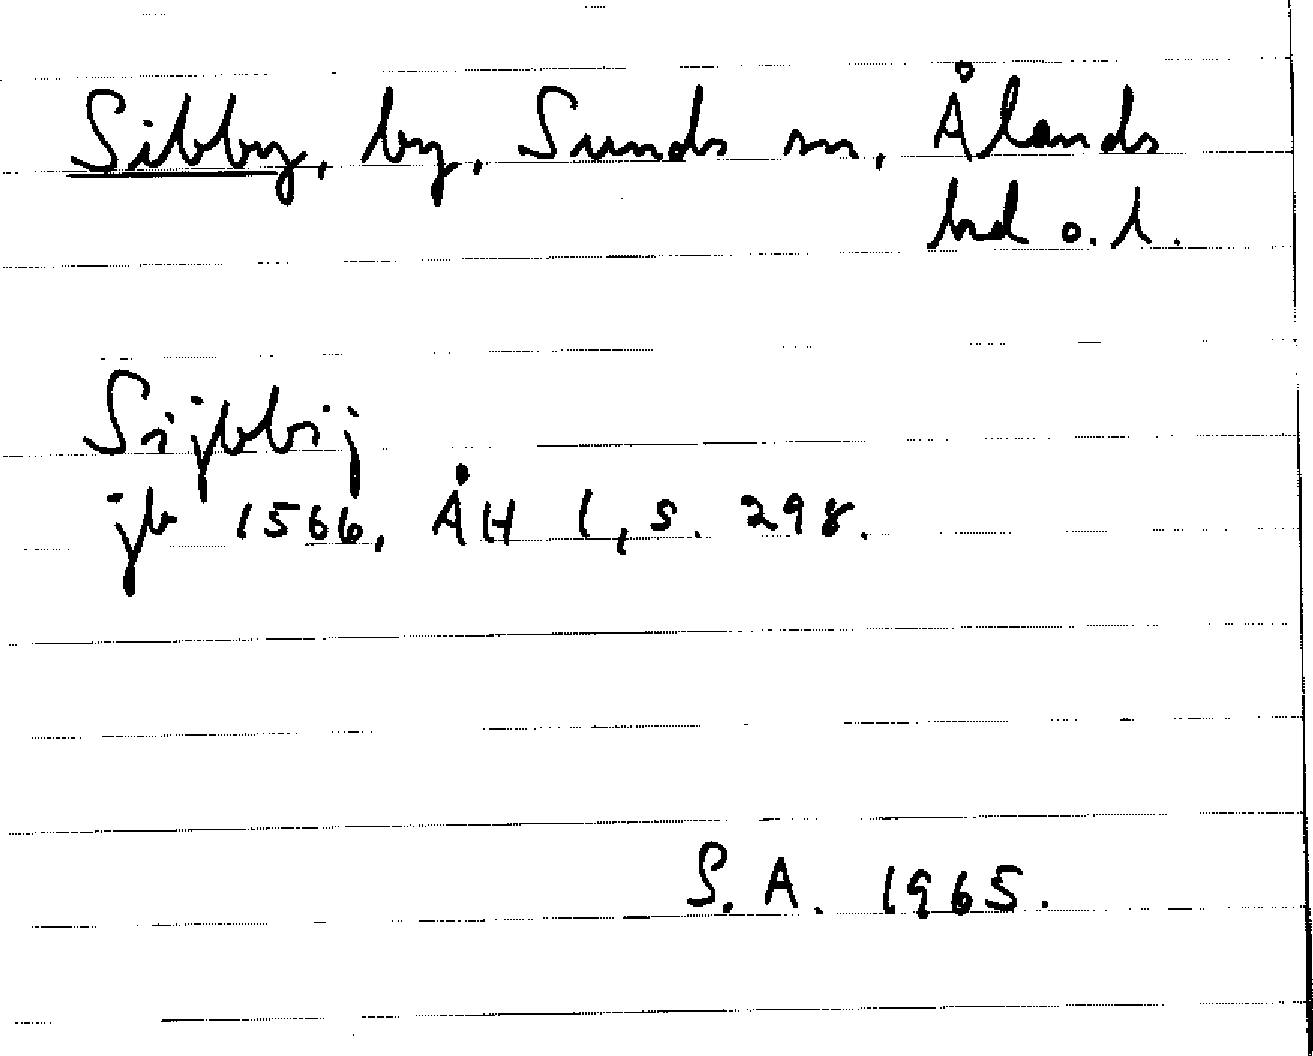 Sibby, by, Sunds sn, Ålands
hd o. l.
Sijbbij
jb 1566, ÅH 1, s. 298.
S. A. 1965.